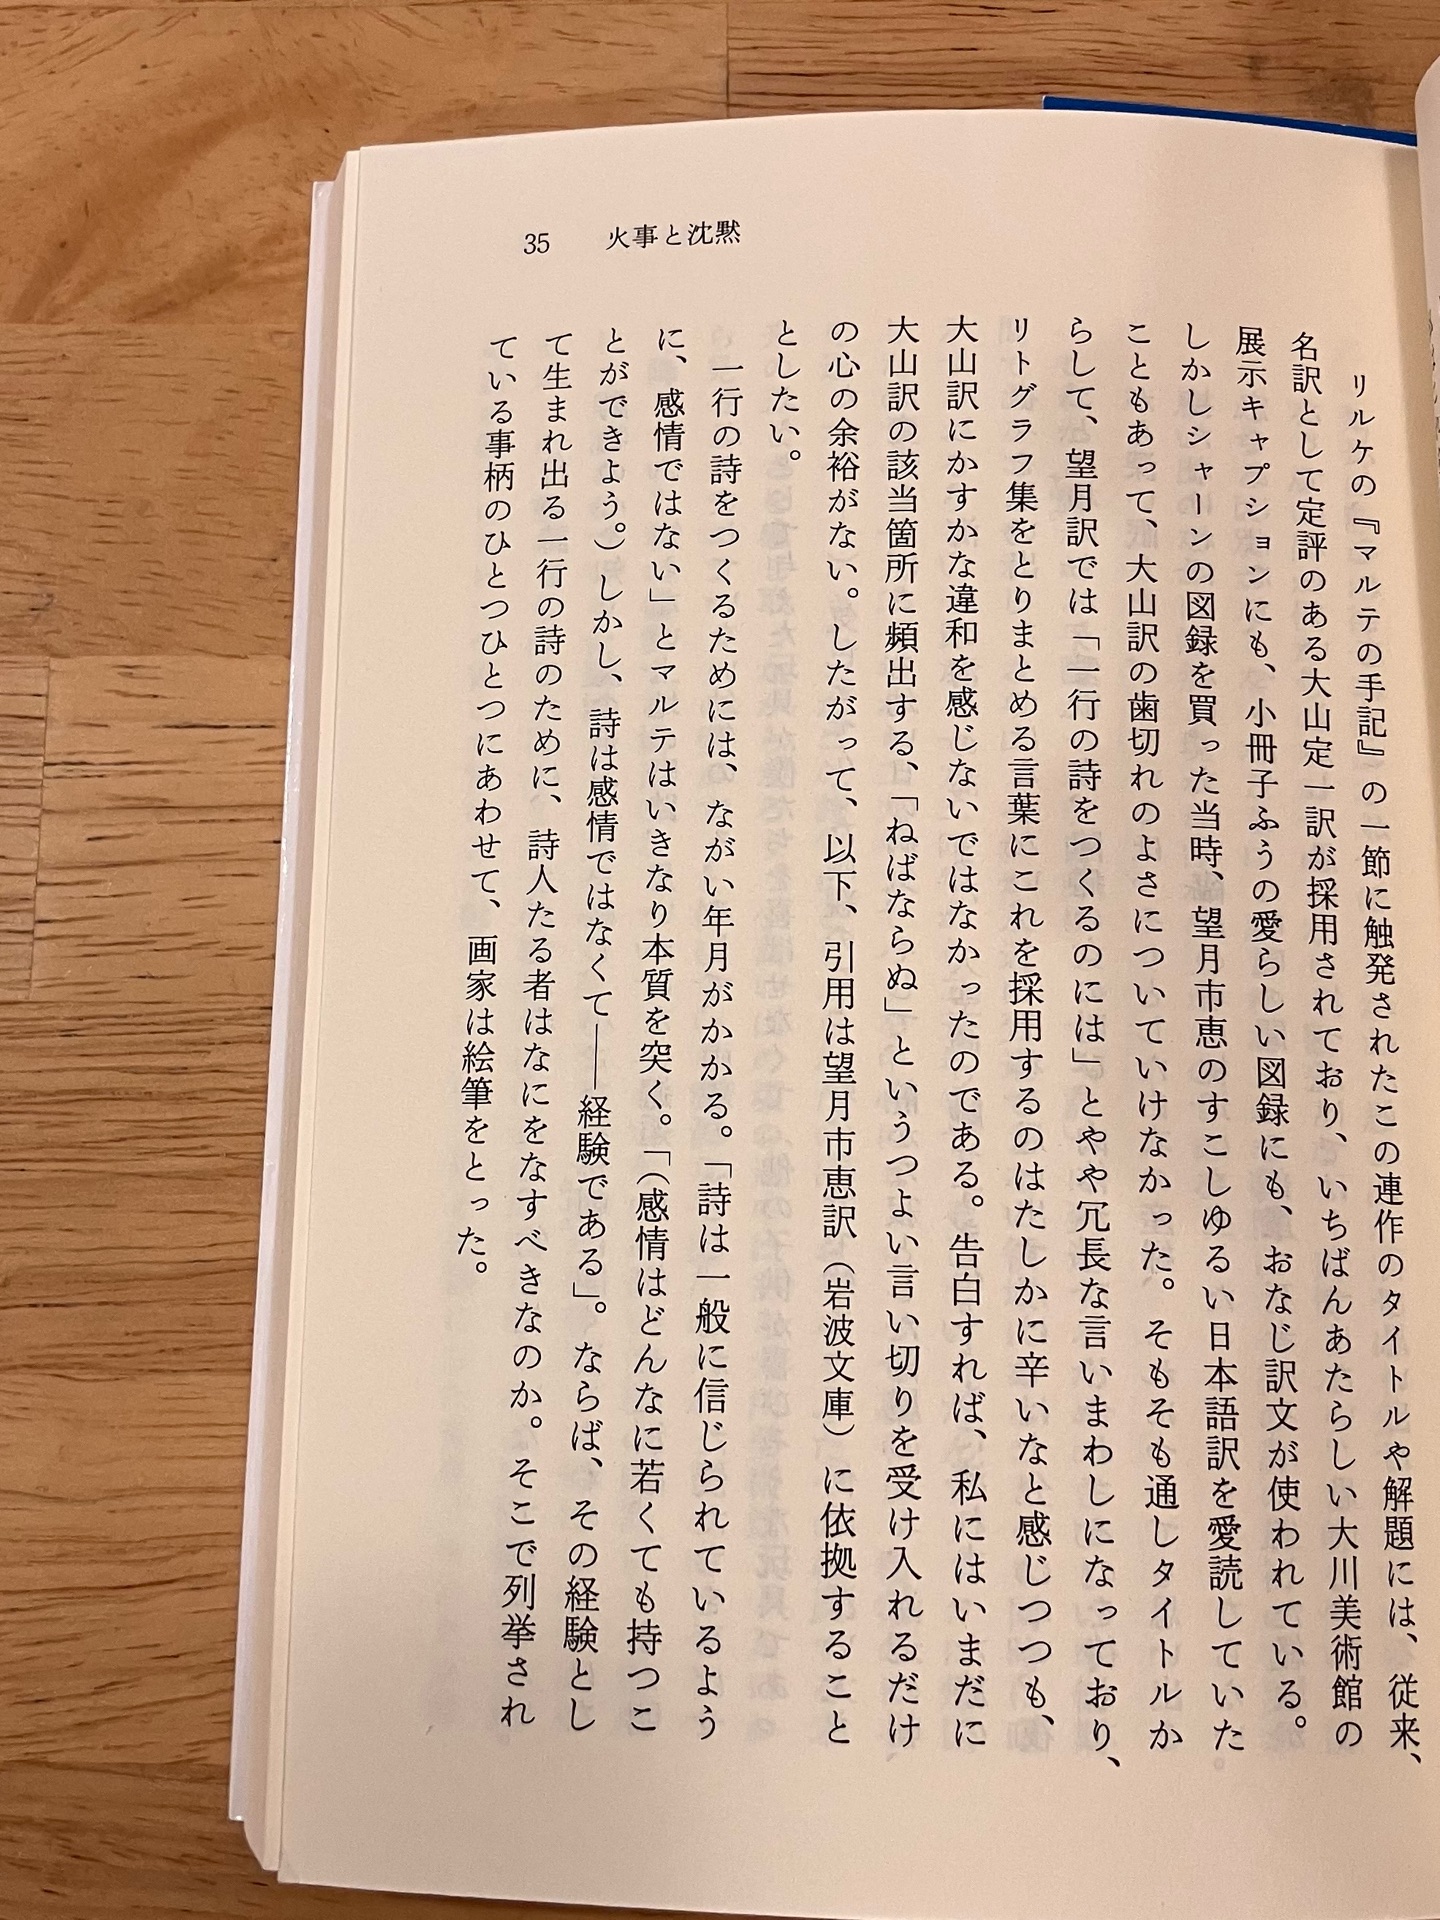 35　火事と沈黙
リルケの『マルテの手記』の一節に触発されたこの連作のタイトルや解題には、従来、
名訳として定評のある大山定一訳が採用されており、いちばんあたらしい大川美術館の
展示キャプションにも、小冊子ふうの愛らしい図録にも、おなじ訳文が使われている。
しかしシャーンの図録を買った当時、望月市恵のすこしゆるい日本語訳を愛読していた
こともあって、大山訳の歯切れのよさについていけなかった。そもそも通しタイトルか
らして、望月訳では「一行の詩をつくるのには」とやや冗長な言いまわしになっており、
リトグラフ集をとりまとめる言葉にこれを採用するのはたしかに辛いなと感じつつも、
大山訳にかすかな違和を感じないではなかったのである。告白すれば、私にはいまだに
大山訳の該当箇所に頻出する、「ねばならぬ」というつよい言い切りを受け入れるだけ
の心の余裕がない。したがって、以下、引用は望月市恵訳（岩波文庫）に依拠すること
としたい。
一行の詩をつくるためには、ながい年月がかかる。「詩は一般に信じられているよう
に、感情ではない」とマルテはいきなり本質を突く。「（感情はどんなに若くても持つこ
とができよう。）しかし、詩は感情ではなくて――経験である」。ならば、その経験とし
て生まれ出る一行の詩のために、詩人たる者はなにをなすべきなのか。そこで列挙され
ている事柄のひとつひとつにあわせて、画家は絵筆をとった。